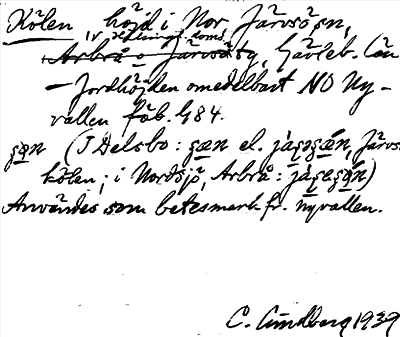 Kölen höjd i Nor, Järvsö sn,
Arbrå o Järvsö tg, Gävleb. län
— Jordhöjden omedelbart NO Ny-
vallen fäb. G84.
(I Delsbo: el. Järvsö-
kölen; i Nordsjö, Arbrå:
Användes som betesmark fr. nyvallen.
C. Lindberg 1939